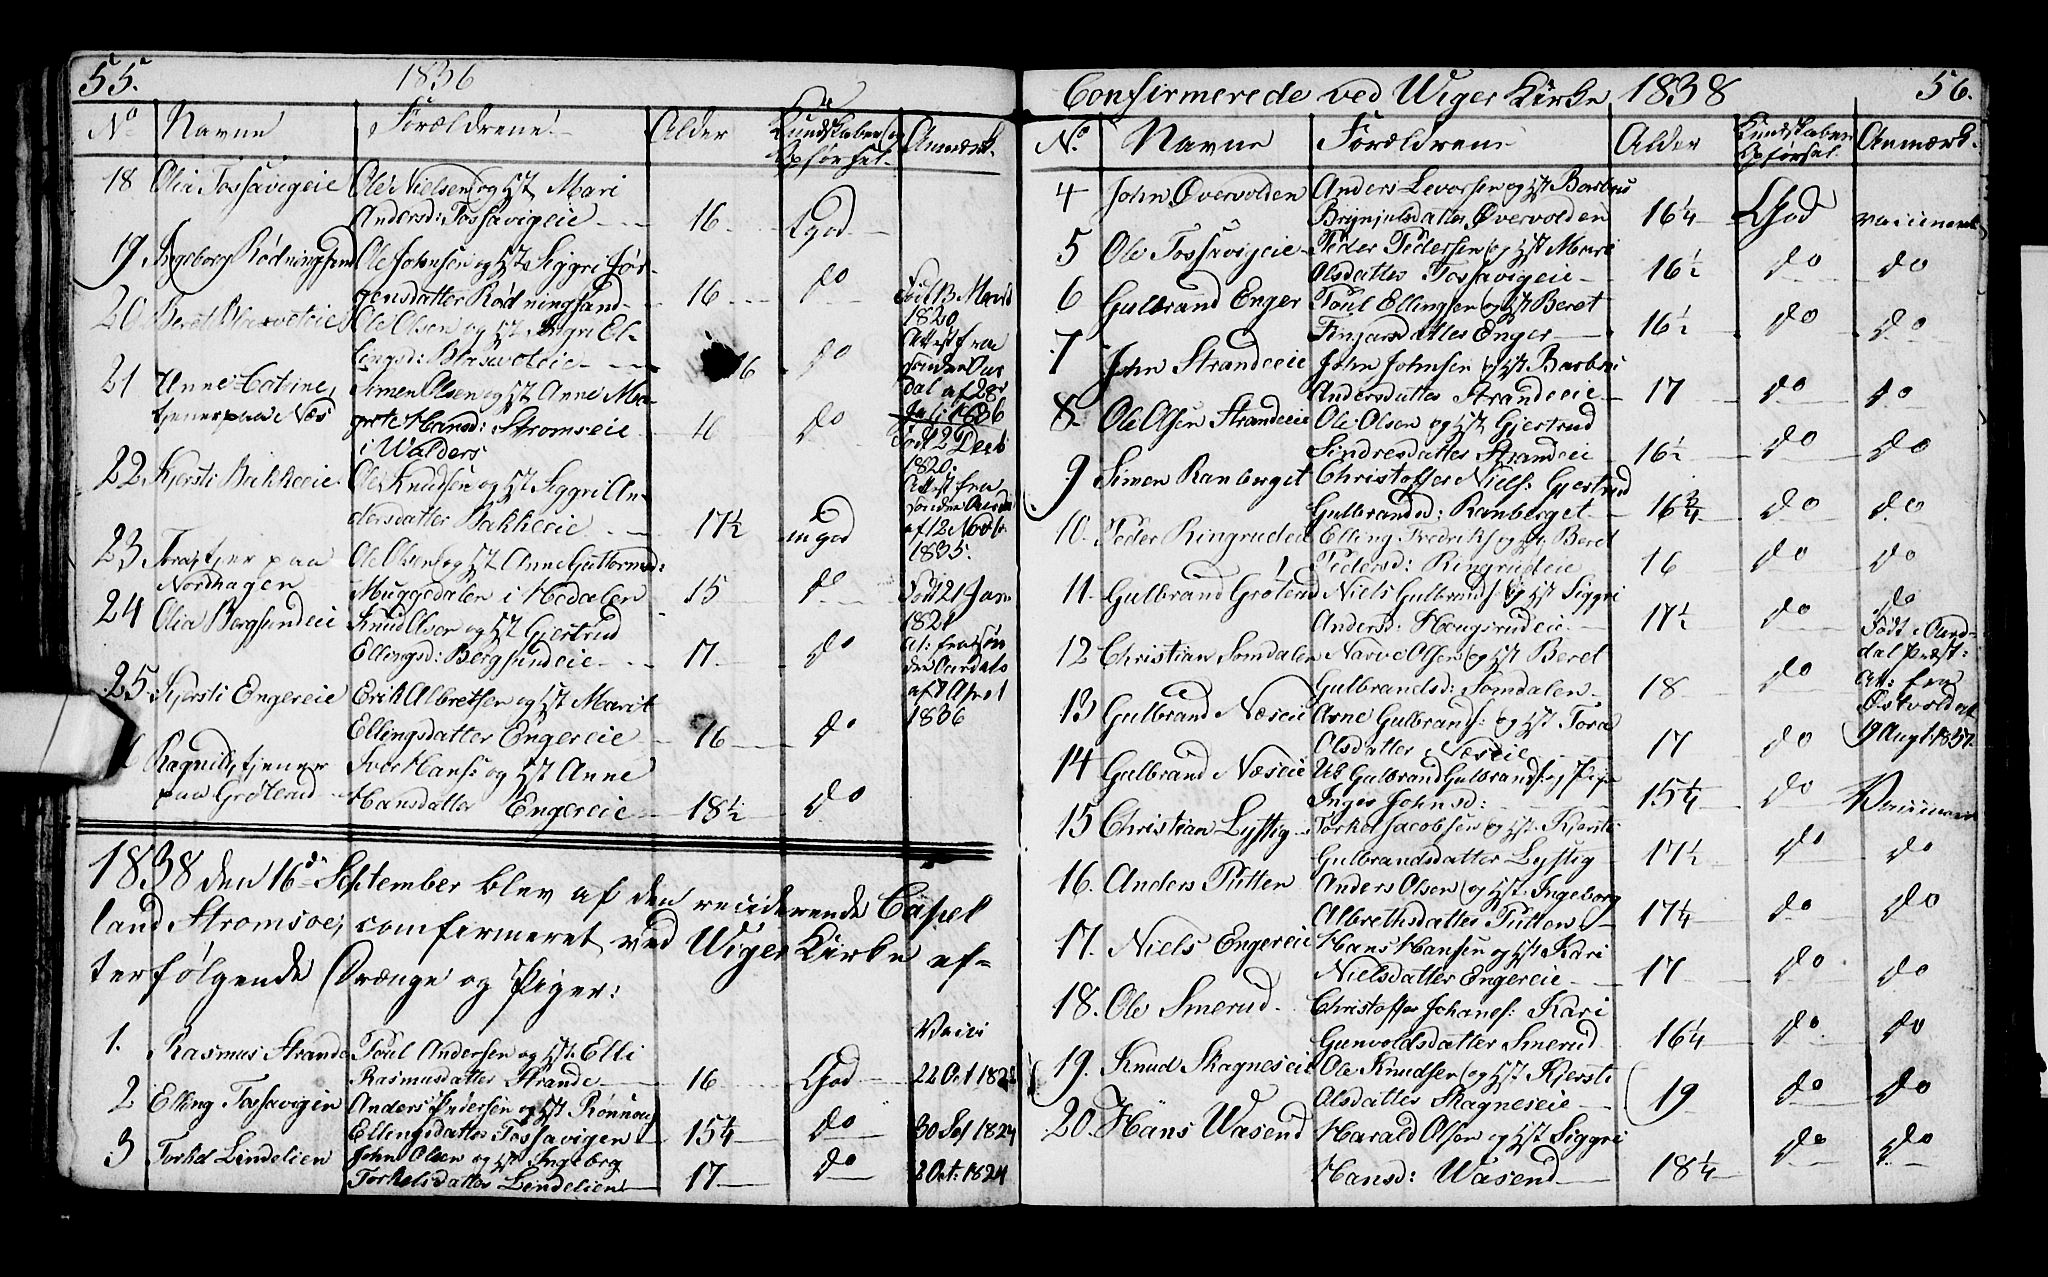 55. 1836
No Navne Forældrene Alder Kundskaber og Opførsel. Anmærk.
18 Olia Tossavigeie Ole Nielsen og Hst Mari
Andersd: Tossavigeie 16 God
19 Ingeborg Rødningsand Ole Johnsen og Hst Siggri Jør-
gensdatter Rødningsand 16 do Født 13 Marts
20 Beret Ole Olsen og Hst Siggri El- 1820
lingsd: 16 do Attest fra
Sønden Aur
21 Anne Catrine, Simen Olsen og Hst Anne Ma- dal af 28
tjener paa Næs grete Hansd: Strømseie 16 do Juli 1836
i Walders Født 2 Decb
22 Kjersti Bakkeeie Ole Knudsen og Hst Siggri An- 1820.
dersdatter Bakkeeie 17½ mgod Attest fra
Sønden Aurda
af 12 Novb
23 Tora, tjener paa Ole Olsen og Hst Anne Guttormsd: 1835.
Nordhagen Muggedalen i Hedalen 15 do Født 21 Jan
24 Olia Bergsundeie Knud Olsen og Hst Gjertrud 1821
Ellingsd: Bergsundeie 17 do At: fra Søn
den Aurdals
25 Kjersti Engereie Erik Albretsen og Hst Marit af 7 April
Ellingsdatter Engereie 16 do 1836
Ragnild, tjener Iver Hans: og Hst Anne
paa Grøterud Hansdatter Engereie 18½ do
1838 den 16de September blev af den residerende Capel
land Stromsoe, comfirmeret ved Wiger Kirke ef-
terfølgende Drænge og Piger:
1. Rasmus Strande Poul Andersen og Hst. Elli Vacci
Rasmusdatter Strande 16 God 22 Oct 1822
2 Elling Tossavigen Anders Pedersen og Hst Rønnaug
Ellingsdatter Tossavigen 15¼ do 30 Sep 1824
3 Torkel Lindelien John Olsen og Hst Ingeborg
Torkelsdatter Lindelien 17 do 2 Oct: 1824
Confirmerede ved Wiger Kirke 1838 56.
No. Navne Forældrene Alder Kundskaber Opførsel. Anmærk.
4 John Øvervolden Anders Levorsen og Hst Barbro
Brynjulsdatter Øvervolden 16¼ God vaccineret
5 Ole Tossavigeie Peder Pedersen og Hst Mari
Olsdatter Tossavigeie 16½ do do
6 Gulbrand Enger Poul Ellingsen og Hst Beret
Finjarsdatter Enger 16½ do do
7 John Strandeeie John Johnsen og Hst Barbro
Andersdatter Strandeeie 17 do do
8. Ole Olsen Strandeeie Ole Olsen og Hst Gjertrud
Sindresdatter Strandeei 16½ do do
9 Simen Ranberget Christoffer Niels: Gjertrud
Gulbrandsd: Ranberget 16¾ do do
10. Peder Ringrudeie Elling Fredriks og H. Beret
Pedersd: Ringrudeie 16 do do
11. Gulbrand Grøterud Niels Gulbrands: og Hst Siggri
Andersd: Hougsrudeie 17½ do do
Født i Aurd-
12 Christian Somdalen Narve Olsen og Hst Beret dal Præst:
Gulbrandsd: Somdalen 18 do Att: fra
Østvold af
13 Gulbrand Næseie Arne Gulbrands: og Hst Tora 9 Augt: 1837.
Olsdatter Næseie 17 do
14 Gulbrand Næseie Ub Gulbrand Gulbrands: og Pige
Inger Johnsd: 15¼ do Vaccineret
15 Christian Lystig Torkel Jacobsen og Hst. Kjersti
Gulbrandsdatter Lystig 17½ do do
16. Anders Putten Anders Olsen og Hst. Ingeborg
Albrethsdatter Putten 17¼ do do
17. Niels Engereie Hans Hansen og Hst Kari
Nielsdatter Engereie 17 do do
18. Ole Smerud Christoffer Johans: Kari
Gunvoldsdatter Smerud 16¼ do do
19. Knud Skagneseie Ole Knudsen og Hst Kjersti
Olsdatter Skagneseie 19 do do
20. Hans Wasend Harald Olsen og Hst Siggri
Hansd: Wasend 18¼ do do